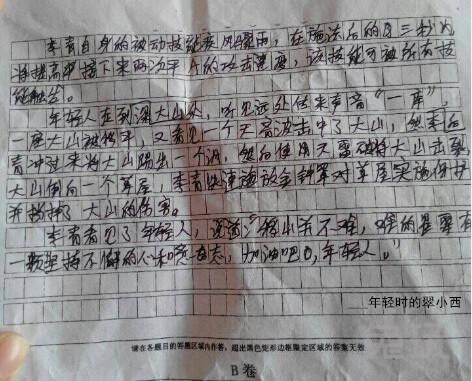 李青自身的被动技能疾风骤雨，在施法后的3三秒内
将提高李接下来两次平A的攻击速度，该技能可被所有技
能触发。
年轻人在到深大山处，听见远处传来声音“一库”，
一座大山被传开，又看见一个天音波击中了大山，然来后
青冲过来将大山踢出一个洞，然后使用天雷破将大山击裂
大山倒向一个草屋，李青快速施放金钟罩对草屋实施保护
并抵挡了大山的伤害。
李青看见了年轻人，说道：“移山并不难，难的是要有
一颗坚持不懈的心和吃苦态，加油吧，年轻人。”
年轻时的翠小西
请在各题目的答题区域内作答，超出黑色矩形边框限定区域的答案无效
B卷